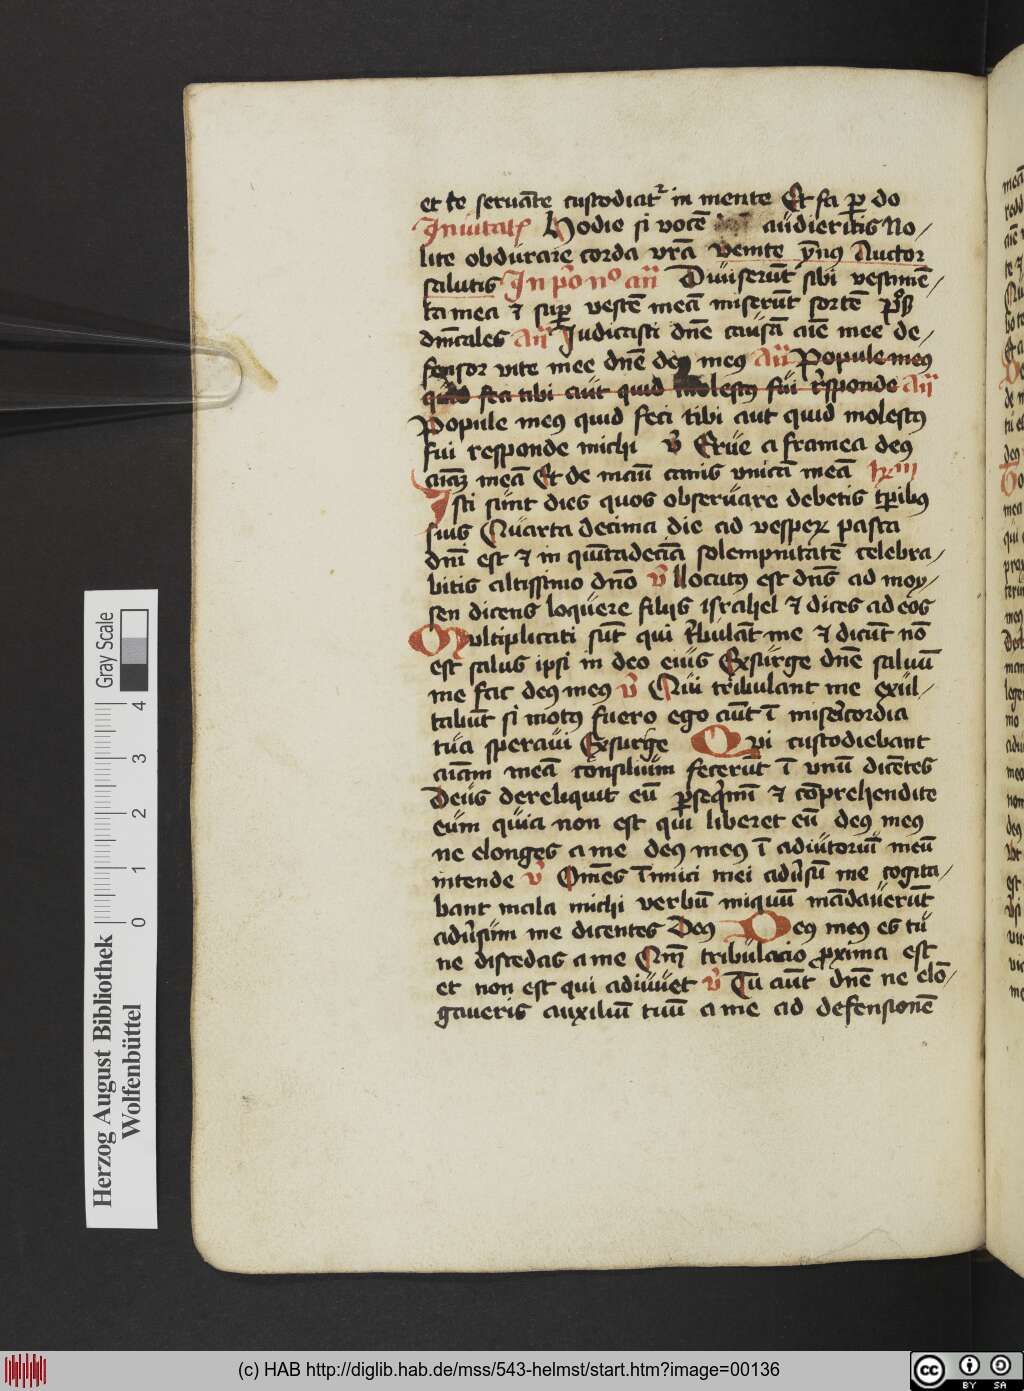 et te seruāte custodiat᷑ in mente Et fa p̱ do
Inuitat᷑ Hodie si vocē audieritis No⸗
lite obdurare corda vr̄a venite yṗnꝰ Auctor
salutis In pͦo noͦ an̄ Diuiserūt sibi vestimē⸗
ta mea ⁊ suꝑ vestē meā miserūt sortē
dn̄icales an̄ Iudicasti dn̄e causā aīe mee de⸗
fensor vite mee dn̄e deꝰ meꝰ An̄ Popule meꝰ
quid feci tibi aut quid molestꝰ fui r̄sponde an̄
Popule meꝰ quid feci tibi aut quid molestꝰ
fui responde michi v̄ Erue a framea deꝰ
aīaꝫ meā Et de manū canis vnicā meā
Isti sunt dies quos obseruare debetis tꝑibꝰ
suis Quarta decima die ad vesperꝝ pasca
dn̄i est ⁊ in quītadecīa solempnitatē celebra⸗
bitis altissimo dn̄o v̄ llocutꝰ est dn̄s ad moy⸗
sen dicens loquere filijs israhel ⁊ dices ad eos
Multiplicati sūt qui t̄bulāt me ⁊ dicūt nō
est salus ipsi in deo eius Exsurge dn̄e saluū
me fac deꝰ meꝰ v̄ Qui tribulant me exul⸗
tabūt si motꝰ fuero ego aūt ī misēicordia
tua speraui Exsurge Qvi custodiebant
aīam meā consilium fecerūt ī vnū dicētes
Deus dereliquit eū ꝑseq̄mī ⁊ cōprehendite
eum quia non est qui liberet eū deꝰ meꝰ
ne elonges a me deꝰ meꝰ ī adiutoriū meū
intende v̄ Om̄es Inimici mei adūsū me cogita⸗
bant mala michi verbū iniquū mādauerūt
adūsum me dicentes Deꝰ Deꝰ meꝰ es tu
ne discedas a me Qm̄ tribulacio ꝓxima est
et non est qui adiuuet v̄ Tu aūt dn̄e ne elō⸗
gaueris auxiliū tuū a me ad defensionē
Herzog August Bibliothek
Wolfenbüttel
0 1 2 3 4
Gray Scale
(c) HAB http://diglib.hab.de/mss/543-helmst/start.htm?image=00136
cc BY SA